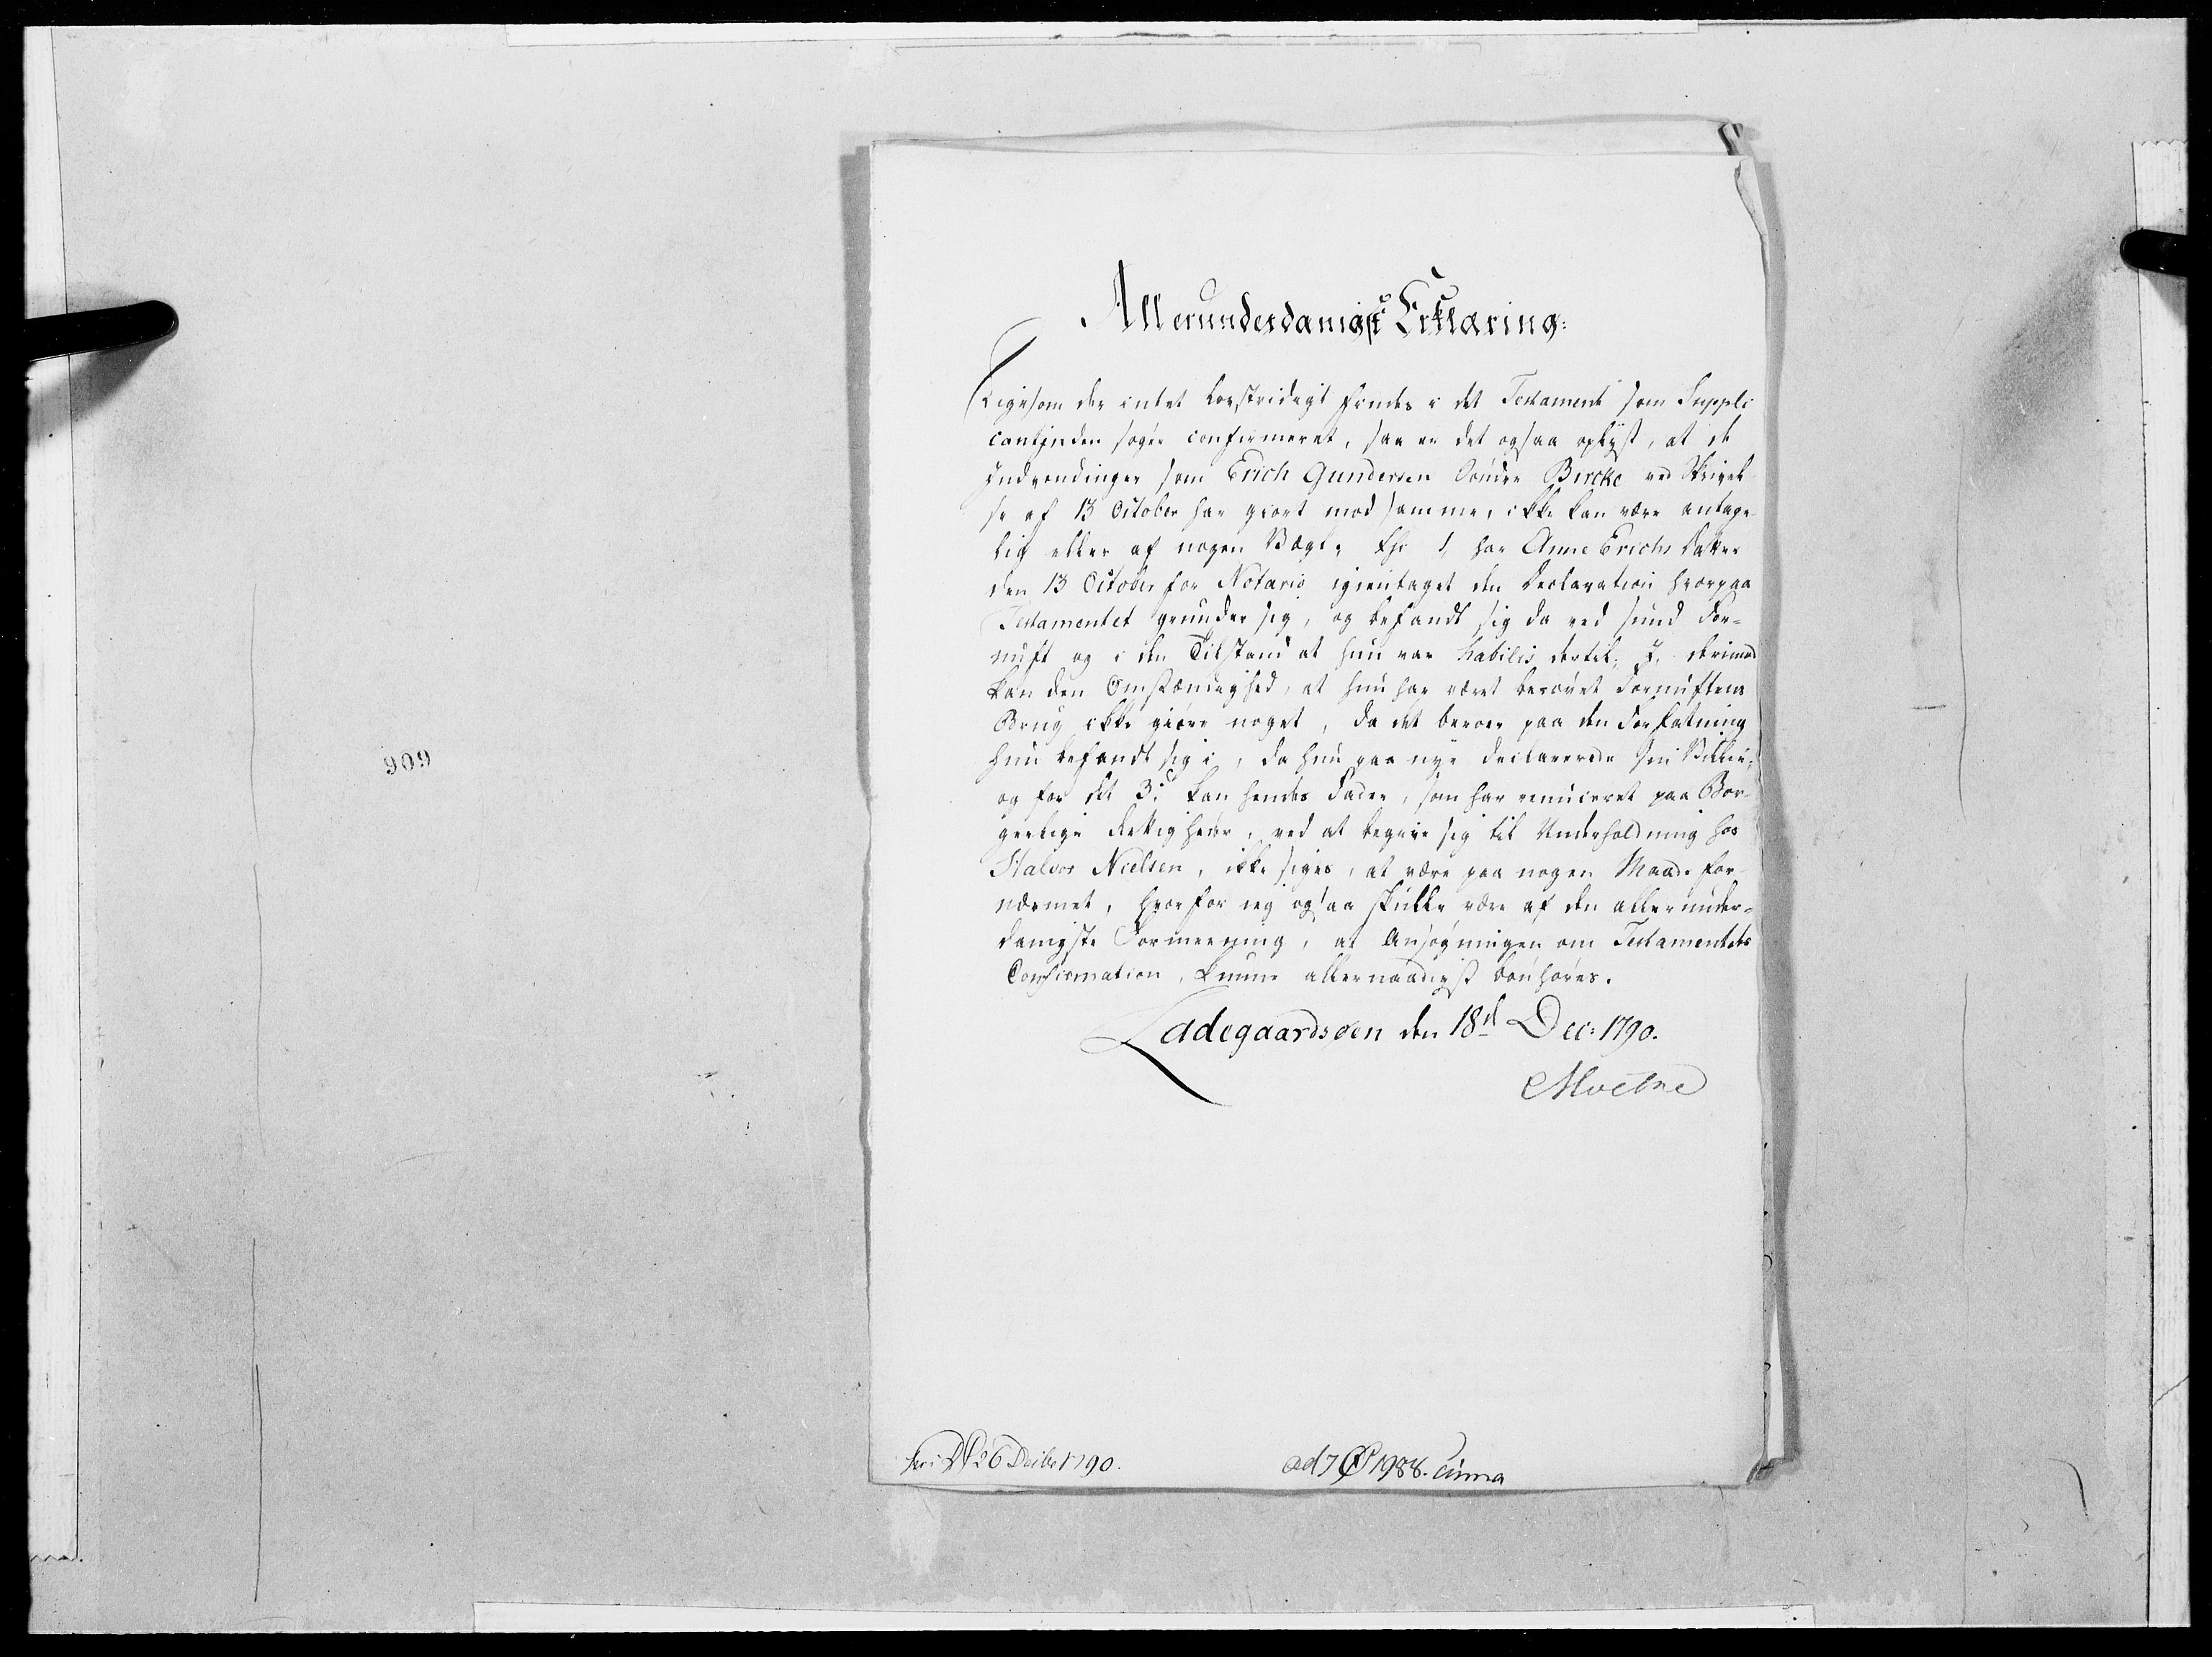 Allerunderdanigst Erklæring:
Ligesom der intet lovstridigt findes i det Testament som Suppli
cantinden søger confirmeret, saa er det ogsaa oplyst, at de
Indvendinger som Erich Gundersen Søndre Bircke ved Skrivel
se af 13 October har giort mod samme, ikke kan være antage
lig eller af nogen Vægt; thi 1, har Anne Erichs Datter
den 13 October for Notario igientaget den Declaration hvorpaa
Testamentet grunder sig, og befandt sig da ved sund For=
nuft og i den Tilstand at hun var habilis dertil; 2, derimod
kan den Omstændighed, at hun har været berøvet Fornuftens
Brug ikke giøre noget, da det beroer paa den Forfatning
hun befandt sig i, da hun paa nye declarerede sin Villie;
og for det 3: kan hendes Fader, som har renunceret paa Bor=
gerlige Rettigheder, ved at begive sig til Underholdning hos
Halvor Nielsen, ikke siges, at være paa nogen Maade for
nærmet, hvorfor jeg ogsaa skulle være af den allerunder=
danigste Formeening, at Ansøgningen om Testamentets
Confirmation, kunne allernaadigst bønhøres.
Ladegaardsøen den 18d Dec: 1790.
Moltke
26 Decbr 1790.
ad 7 1988. Anna
909